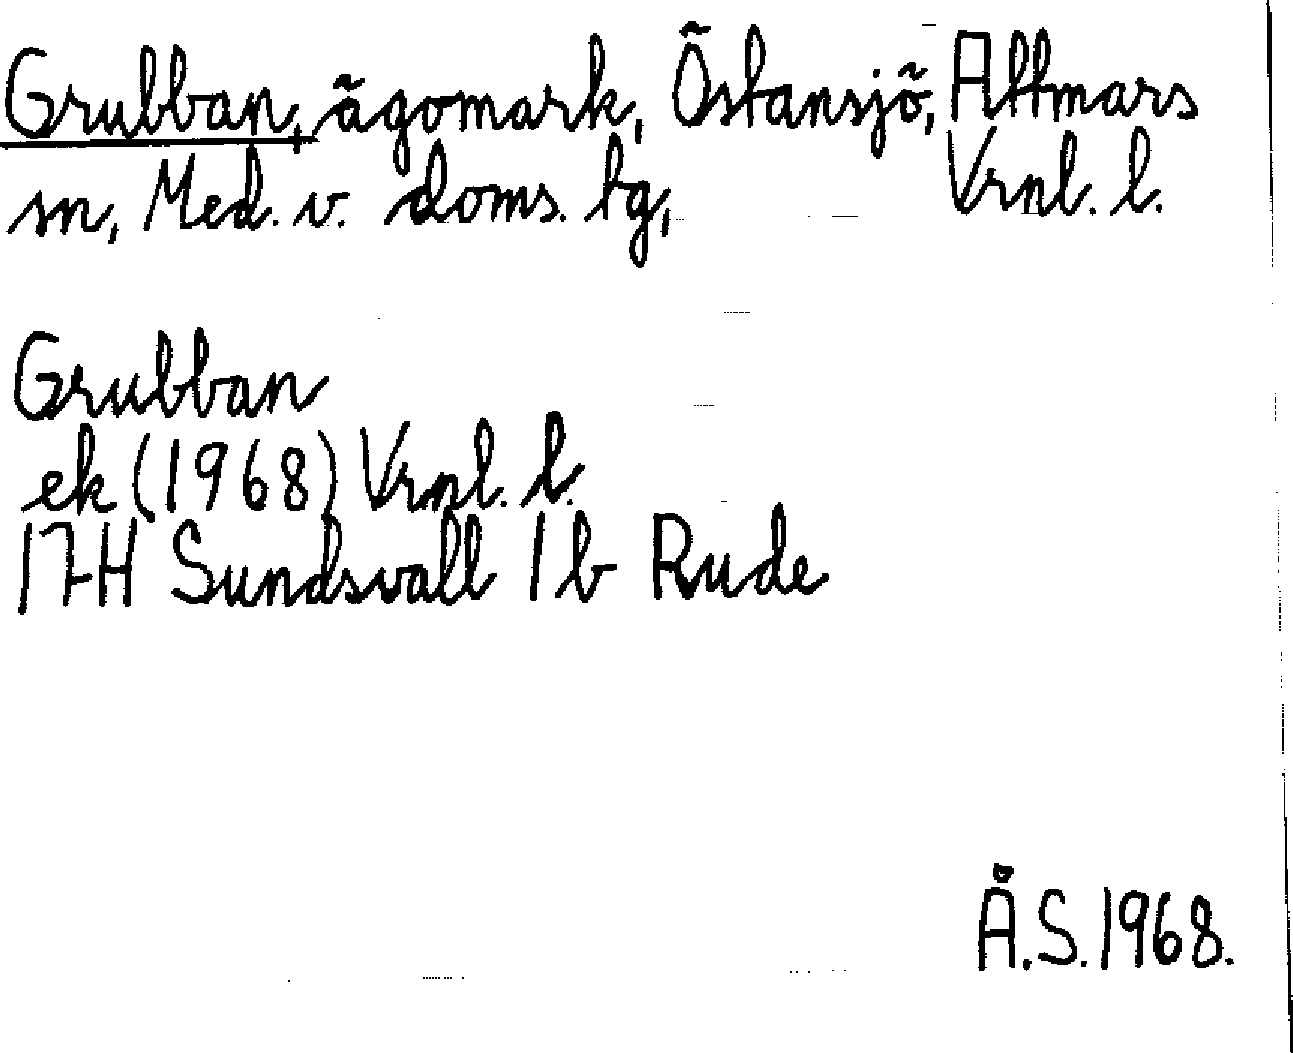 Grubban, ägomark, Östansjö, Attmars
sn, Med. v. doms. tg, Vrnl. l.
Grubban
ek (1968) Vrnl. l.
17H Sundsvall 1 b Rude
Å.S. 1968.